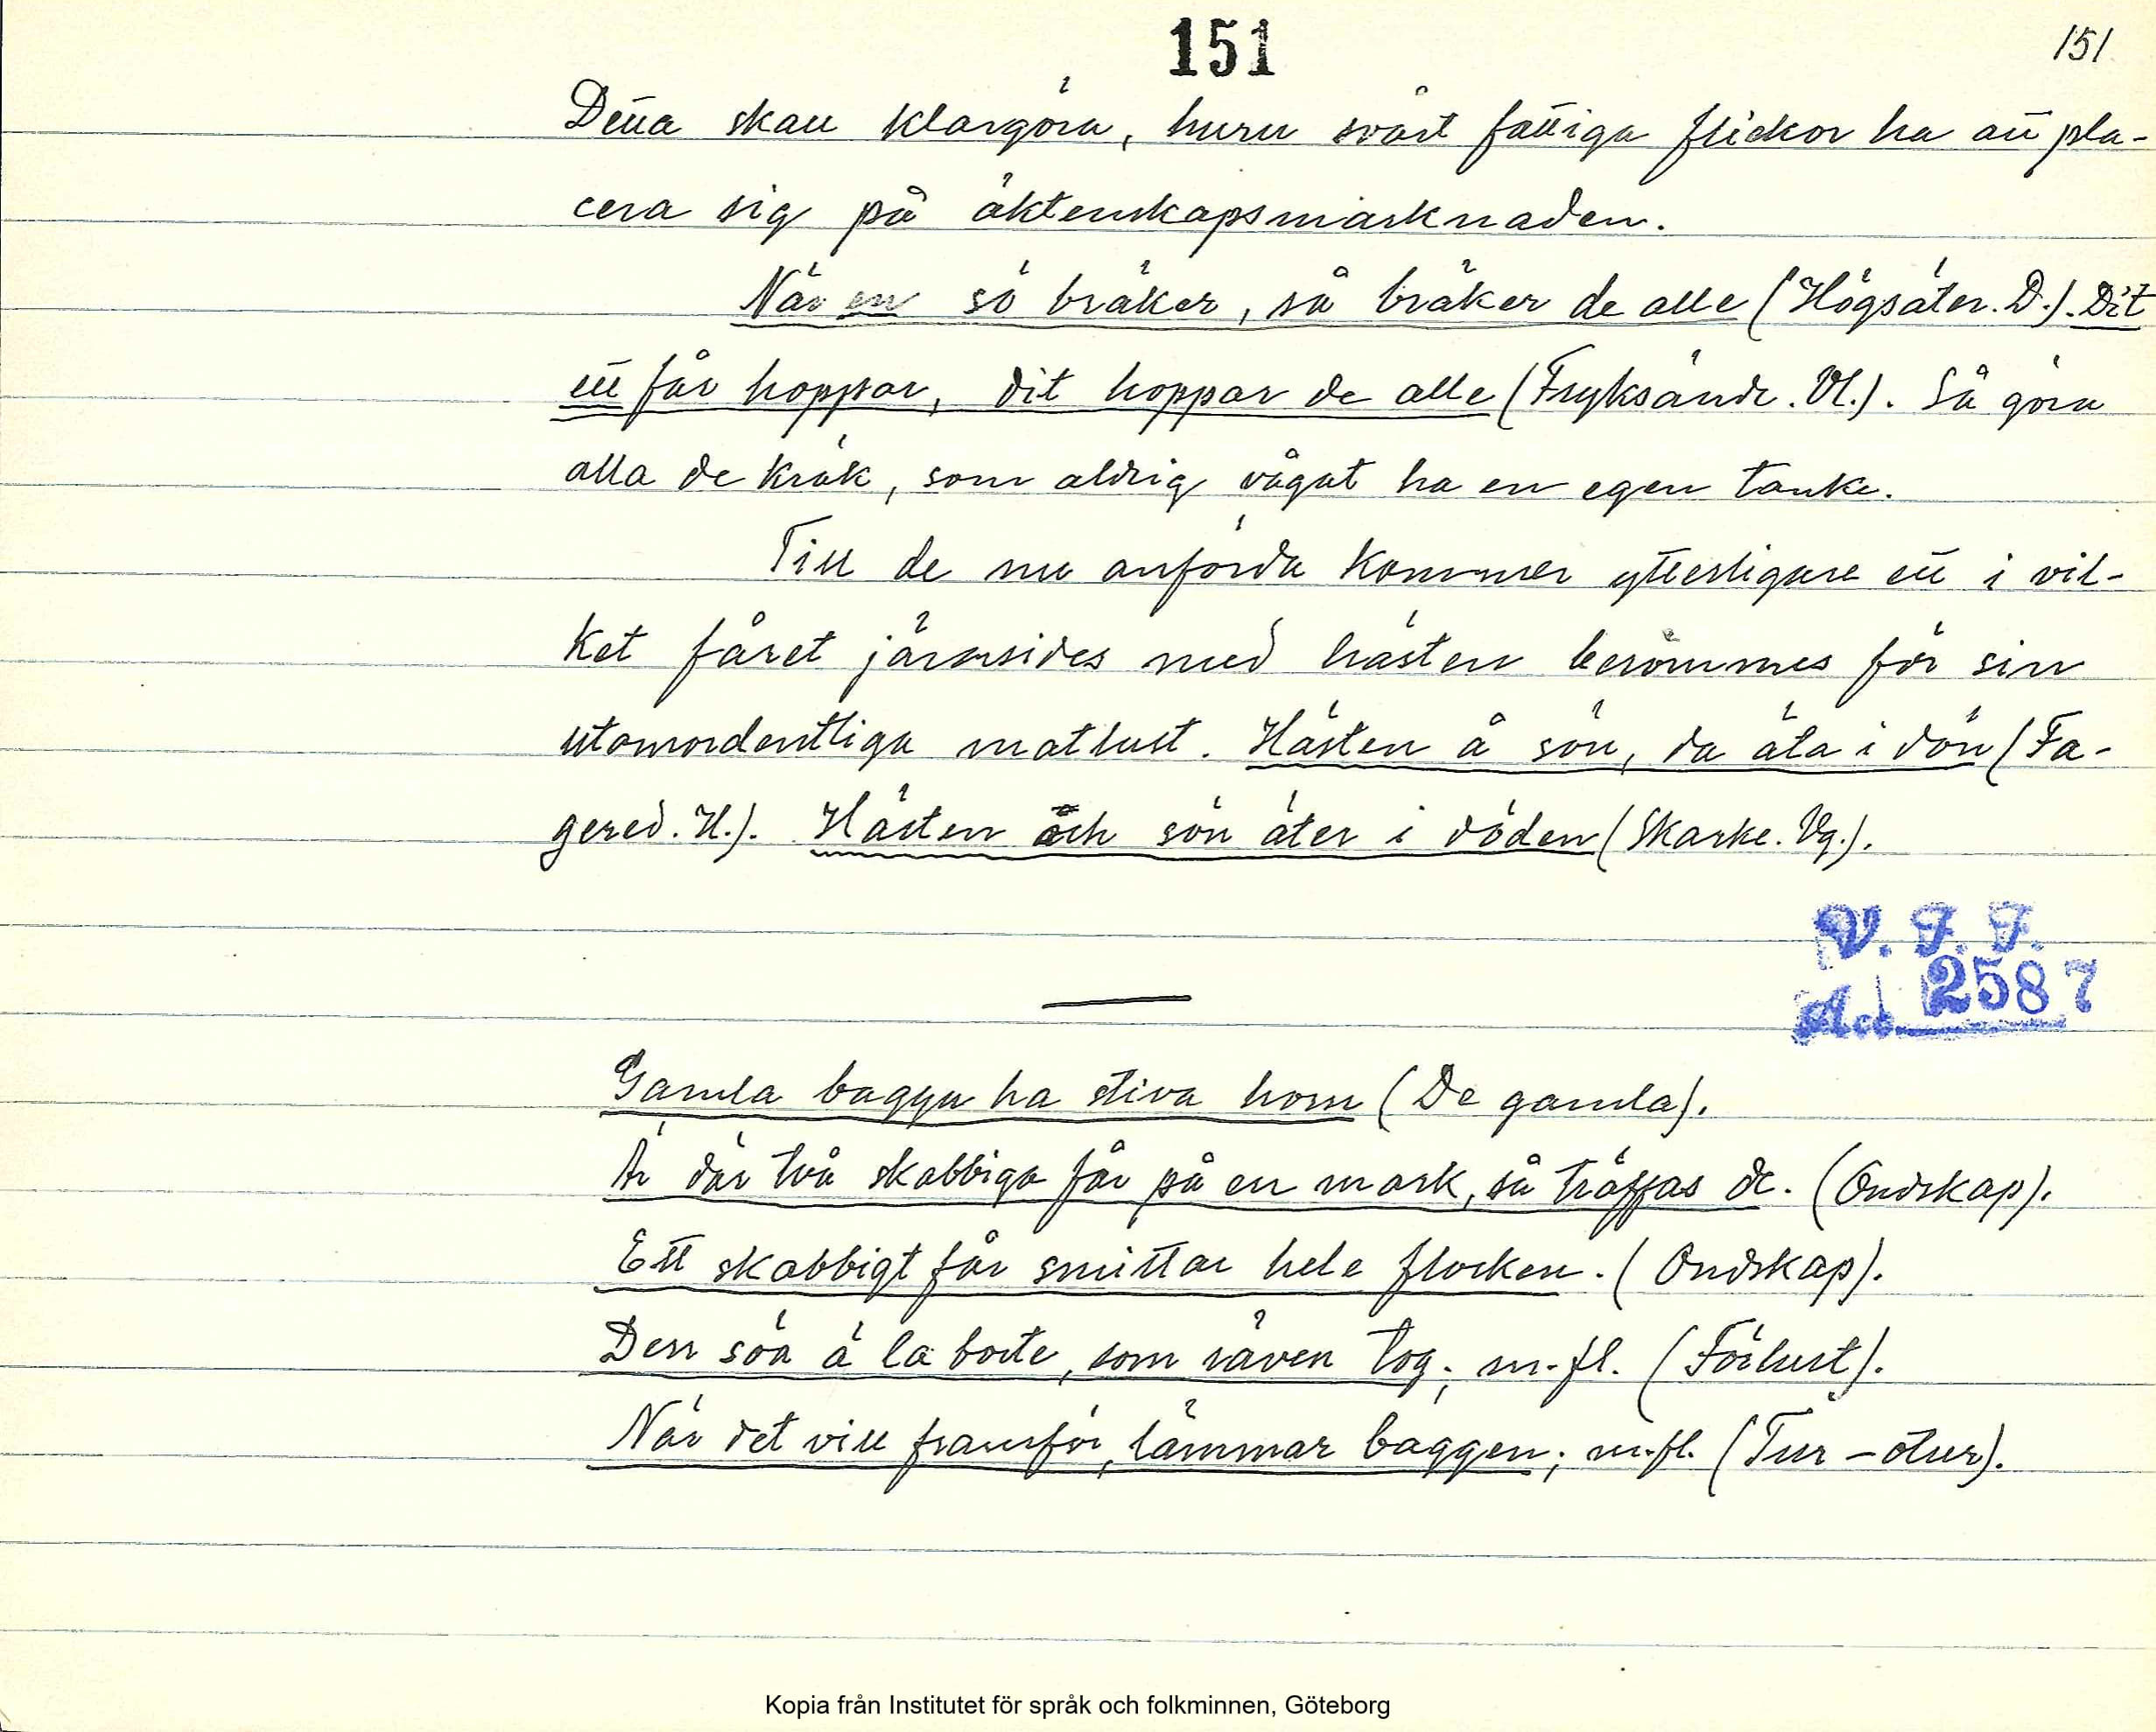 151
151
Detta skall klargöra, huru svårt fattiga flickor ha att pla-
cera sig på äktenskapsmarknaden.
När en sö bräker, så bräker de alle (Högsäter. D.). Dit
ett får hoppar, dit hoppar de alle (Fryksände. Vl.). Så göra
alla de kräk, som aldrig vågat ha en egen tanke.
Till de nu anförda kommer ytterligare ett i vil-
ket fåret jämsides med hästen berömmes för sin
utomordentliga matlust. Hästen å sön, da äta i dön (Fa-
gered. H.). Hästen och sön äter i döden (Skarke. Vg.).
V. F. F.
Acc. 2587
Gamla bagga ha stiva horn (De gamla).
Är där två skabbiga får på en mark, så träffas de. (Ondskap).
Ett skabbigt får smittar hele flocken. (Ondskap).
Den söa ä la borte, som räven tog; m. fl. (Förlust).
När det vill framför, lammar baggen; m. fl. (Tur – otur).
Kopia från Institutet för språk och folkminnen, Göteborg